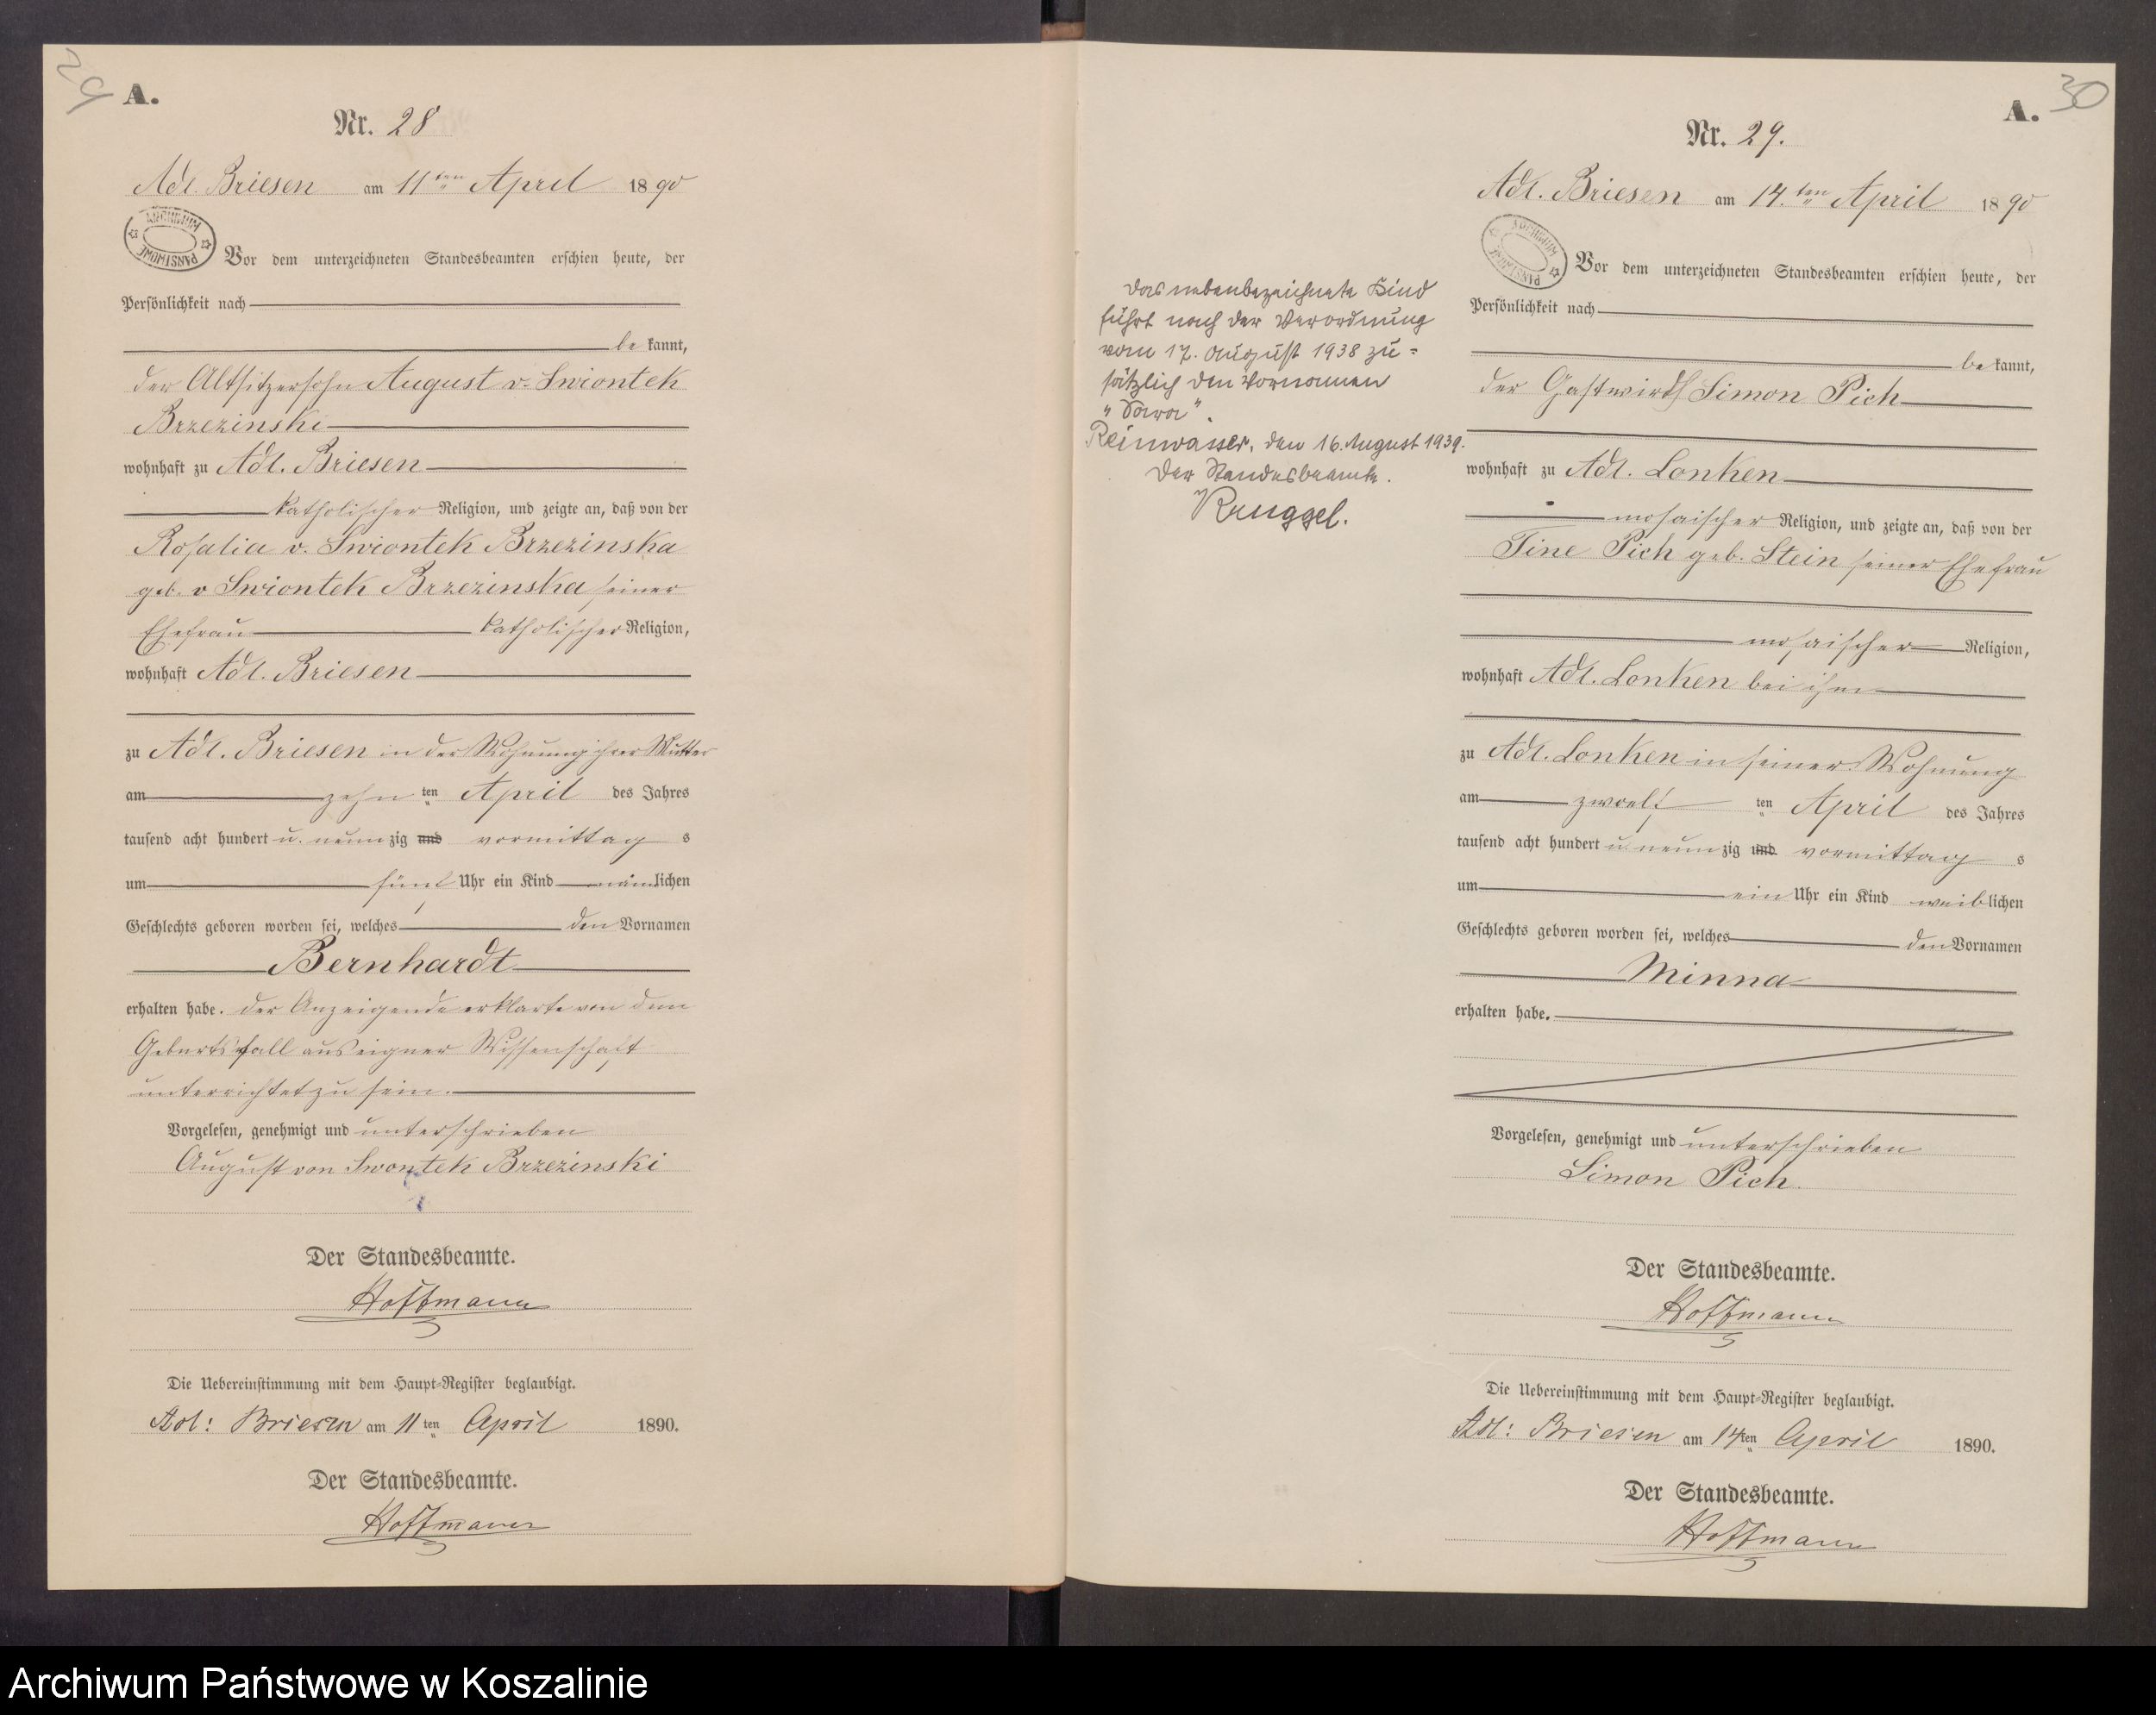 29
A.
Nr. 28
Adl. Briesen am 11ten April 1890
ARCHIWUM PAŃSTWOWE
Vor dem unterzeichneten Standesbeamten erschien heute, der
Persönlichkeit nach
be kannt,
der Altsitzersohn August v. Swiontek
Brzezinski
wohnhaft zu Adl. Briesen
katholischer Religion, und zeigte an, daß von der
Rosalia v. Swiontek Brzezinska
geb. v Swiontek Brzezinska seiner
Ehefrau katholischer Religion,
wohnhaft Adl. Briesen
zu Adl. Briesen in der Wohnung ihrer Mutter
am zehn ten April des Jahres
tausend acht hundert u. neunzig und vormittag s
um fünf Uhr ein Kind männlichen
Geschlechts geboren worden sei, welches den Vornamen
Bernhardt
erhalten habe. der Anzeigende erklärte von dem
Geburtsfall aus eigner Wissenschaft
unterrichtet zu sein.
Vorgelesen, genehmigt und unterschrieben
August von Swontek Brzezinski
Der Standesbeamte.
Hoffmann
Die Uebereinstimmung mit dem Haupt-Register beglaubigt.
Adl: Briesen am 11ten April 1890.
Der Standesbeamte.
Hoffmann
30
A.
Nr. 29.
Adl. Briesen am 14.ten April 1890
ARCHIWUM PAŃSTWOWE
Vor dem unterzeichneten Standesbeamten erschien heute, der
Persönlichkeit nach
be kannt,
der Gastwirth Simon Pich
wohnhaft zu Adl. Lonken
mosaischer Religion, und zeigte an, daß von der
Tine Pich geb. Stein seiner Ehefrau
mosaischer Religion,
wohnhaft Adl. Lonken bei ihm
zu Adl. Lonken in seiner Wohnung
am zwoelf ten April des Jahres
tausend acht hundert u neunzig und vormittag s
um ein Uhr ein Kind weiblichen
Geschlechts geboren worden sei, welches den Vornamen
Minna
erhalten habe.
Vorgelesen, genehmigt und unterschrieben
Simon Pich.
Der Standesbeamte.
Hoffmann
Die Uebereinstimmung mit dem Haupt-Register beglaubigt.
Adl: Briesen am 14ten April 1890.
Der Standesbeamte.
Hoffmann
Das nebenbezeichnete Kind
führt nach der Verordnung
vom 17. August 1938 zu=
sätzlich den Vornamen
"Sara".
Reinwasser, den 16. August 1939.
Der Standesbeamte.
Kruggel.
Archiwum Państwowe w Koszalinie